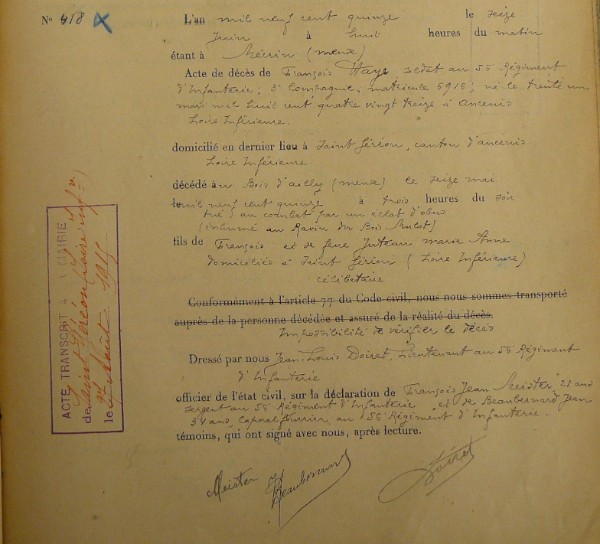 N° 458
L'an mil neuf cent quinze le seize
Juin à huit heures du matin
étant à Mécrin (meuse)
Acte de décès de François Haye soldat au 55 Régiment
d'Infanterie, 3e Compagnie, matricule 5915; né le trente un
mai mil huit cent quatre vingt treize à Ancenis
Loire Inférieure.
domicilié en dernier lieu à Saint Géréon, canton d'ancenis
Loire Inférieure
décédé au Bois d'ailly (meuse) le seize mai
mil neuf cent quinze à trois heures du soir
tué au combat par un eclat d'obus
(inhumé au Ravin du Bois Mulot)
fils de François et de feue Juteau marie Anne
domiciliée à Saint Géréon (Loire Inférieure)
célibataire
Conformément à l'article 77 du Code civil, nous nous sommes transporté
auprès de la personne décédée et assuré de la réalité du décès.
Impossibilité de vérifier le décès
Dressé par nous Jean Louis Doiret, Lieutenant au 55 Régiment
d'Infanterie
officier de l'état civil, sur la déclaration de François Jean Meister 21 ans
sergent au 55 Régiment d'Infanterie et de Beaubernard Jean
34 ans, caporal fourrier au 55e Régiment d'Infanterie.
témoins, qui ont signé avec nous, après lecture.
Meister Beaubernard Doiret
ACTE TRANSCRIT A LA MAIRIE
de Saint Géréon (Loire Infre)
le 1915